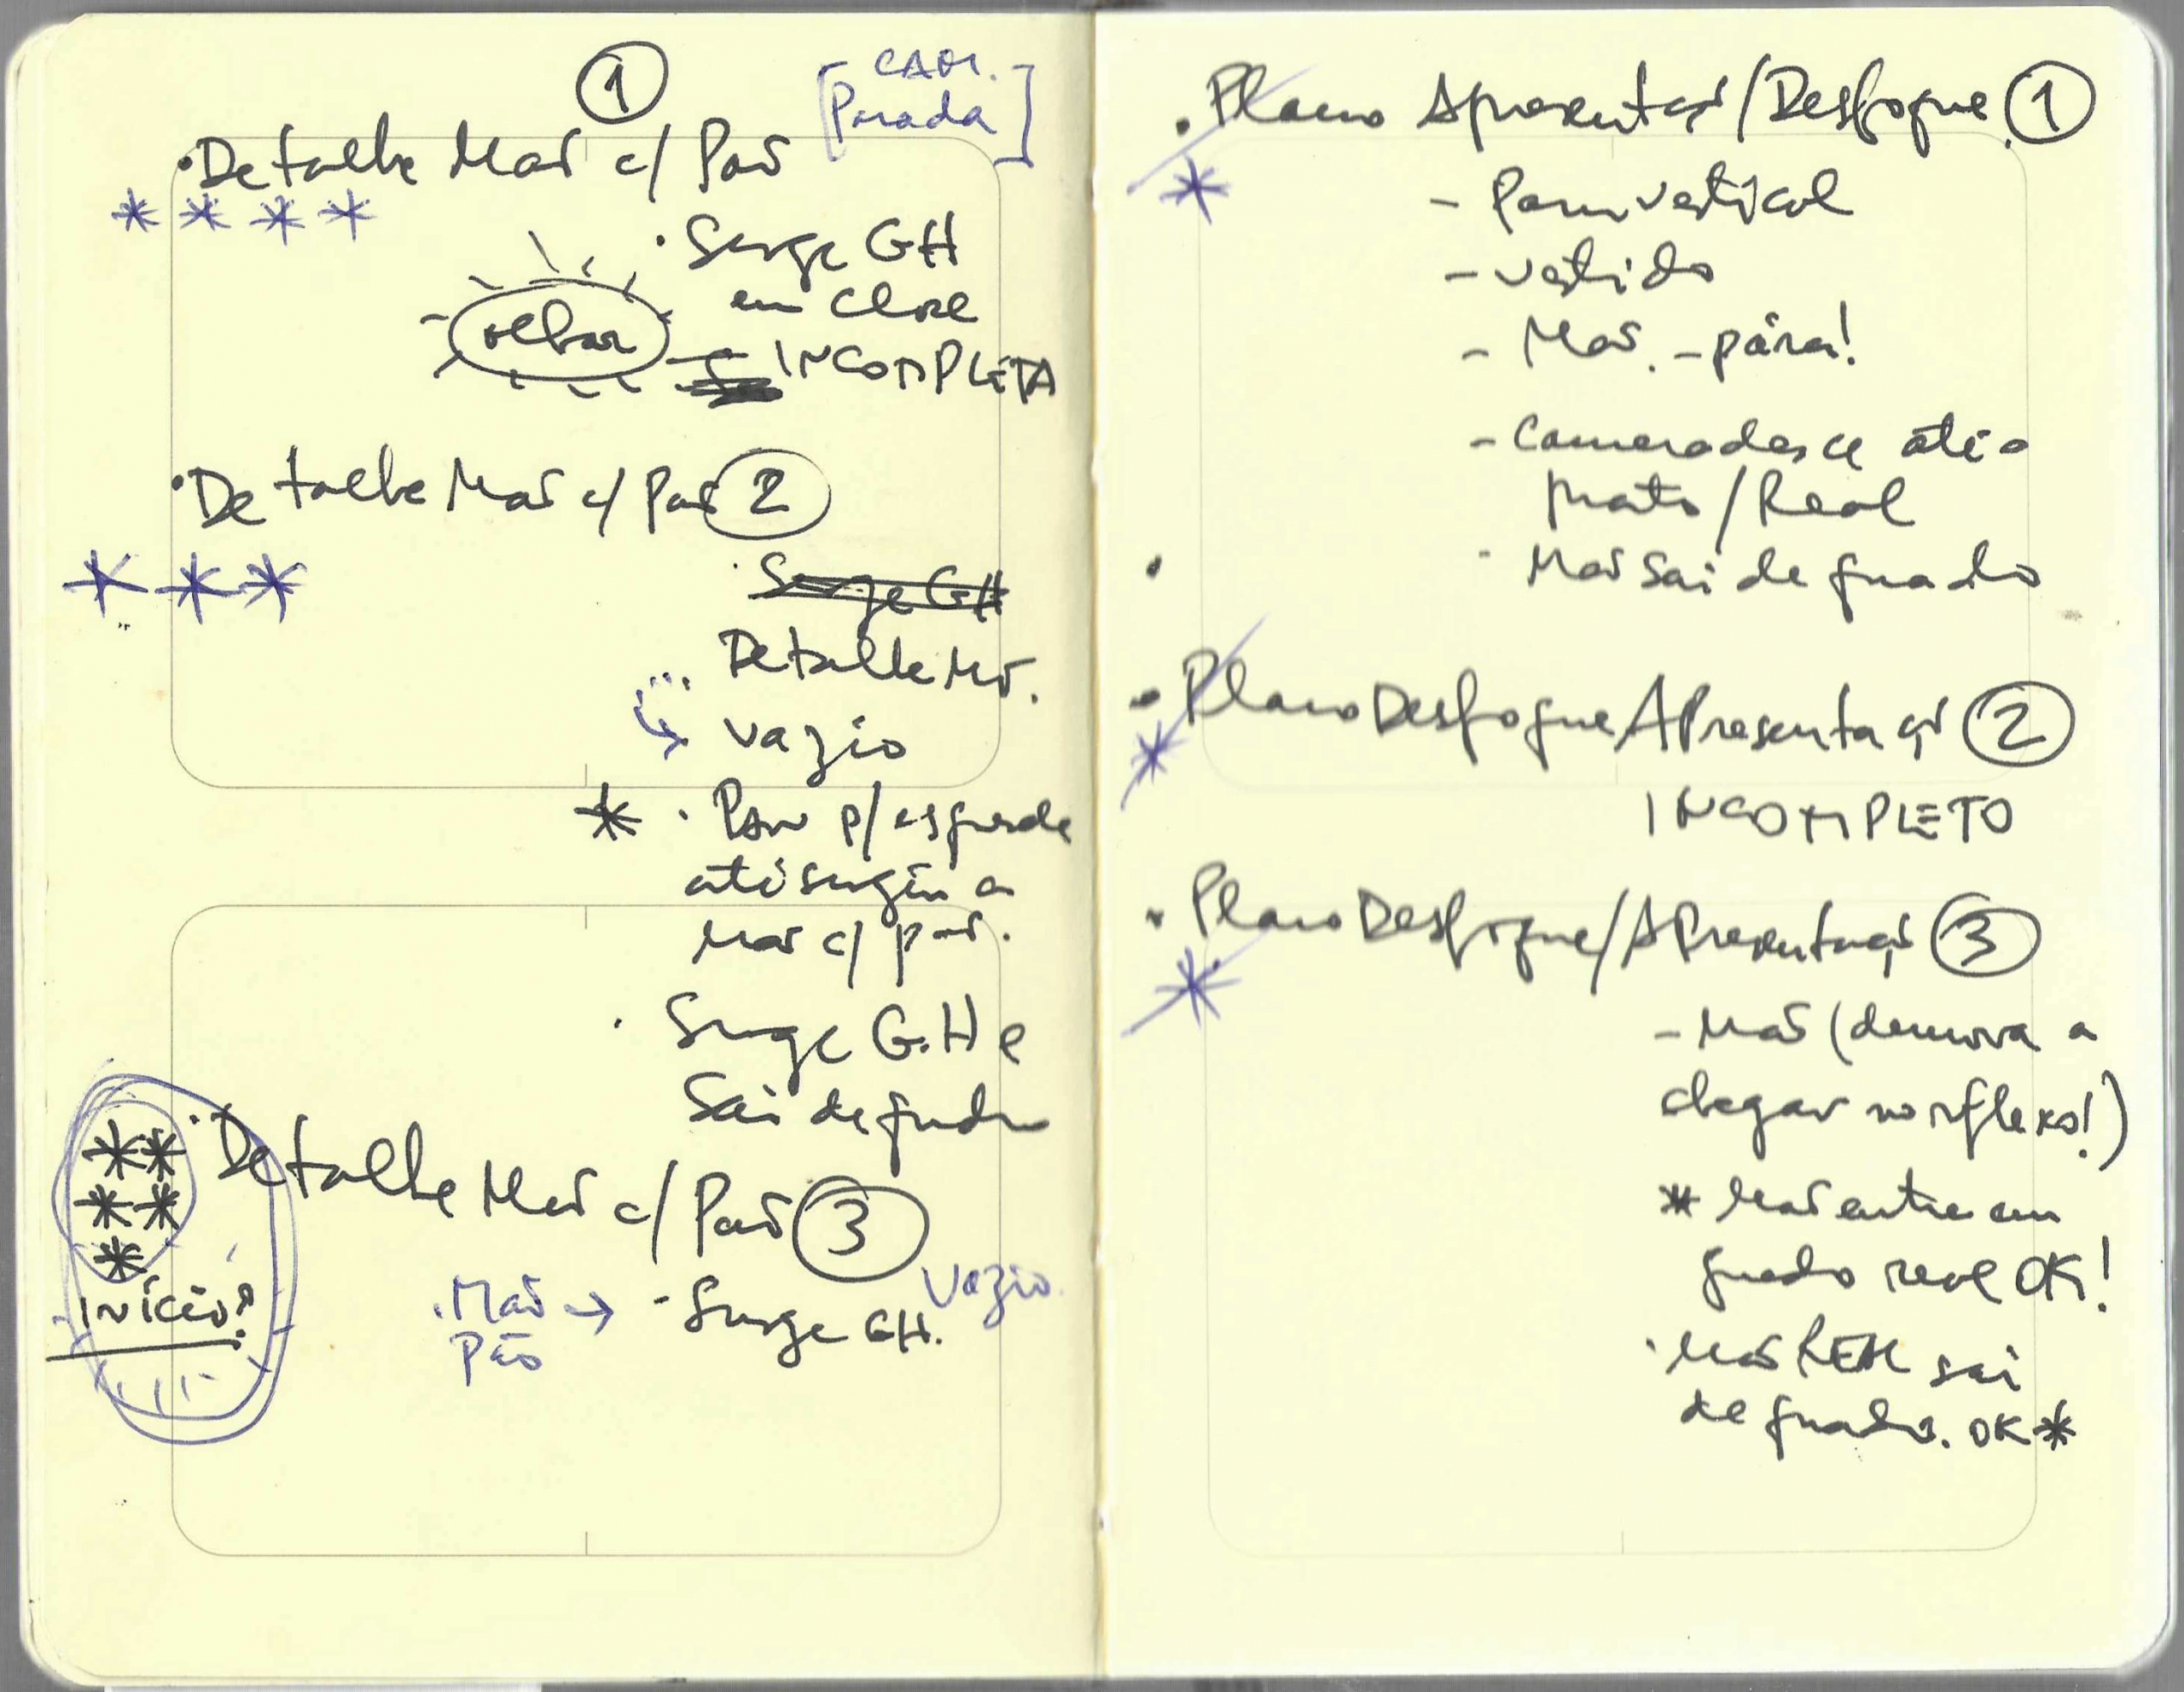 ①
[CAM.
Parada]
• Detalhe Mão c/ Pão
* * * *
• Surge GH
em close
olhar
INCOMPLETA
• Detalhe Mão c/ Pão ②
* * *
· Surge GH
Detalhe Mão.
↳ vazio
* · Pan p/ esquerda
até surgir a
mão c/ pão.
· Surge G.H e
sai de quadro
**
**
*
início?
· Detalhe Mão c/ Pão ③
Vazio.
. Mão → - Surge GH.
Pão
• Plano Apresentação/Desfoque ①
*
- Pan vertical
- vestido
- Mão. - pára!
- Camera desce até o
prato / Real
· Mão sai de quadro
• Plano Desfoque/Apresentação ②
*
INCOMPLETO
• Plano Desfoque/Apresentação ③
*
- Mão (demora a
chegar no reflexo!)
* Mão entra em
quadro real OK!
· Mão sai
de quadro. OK *